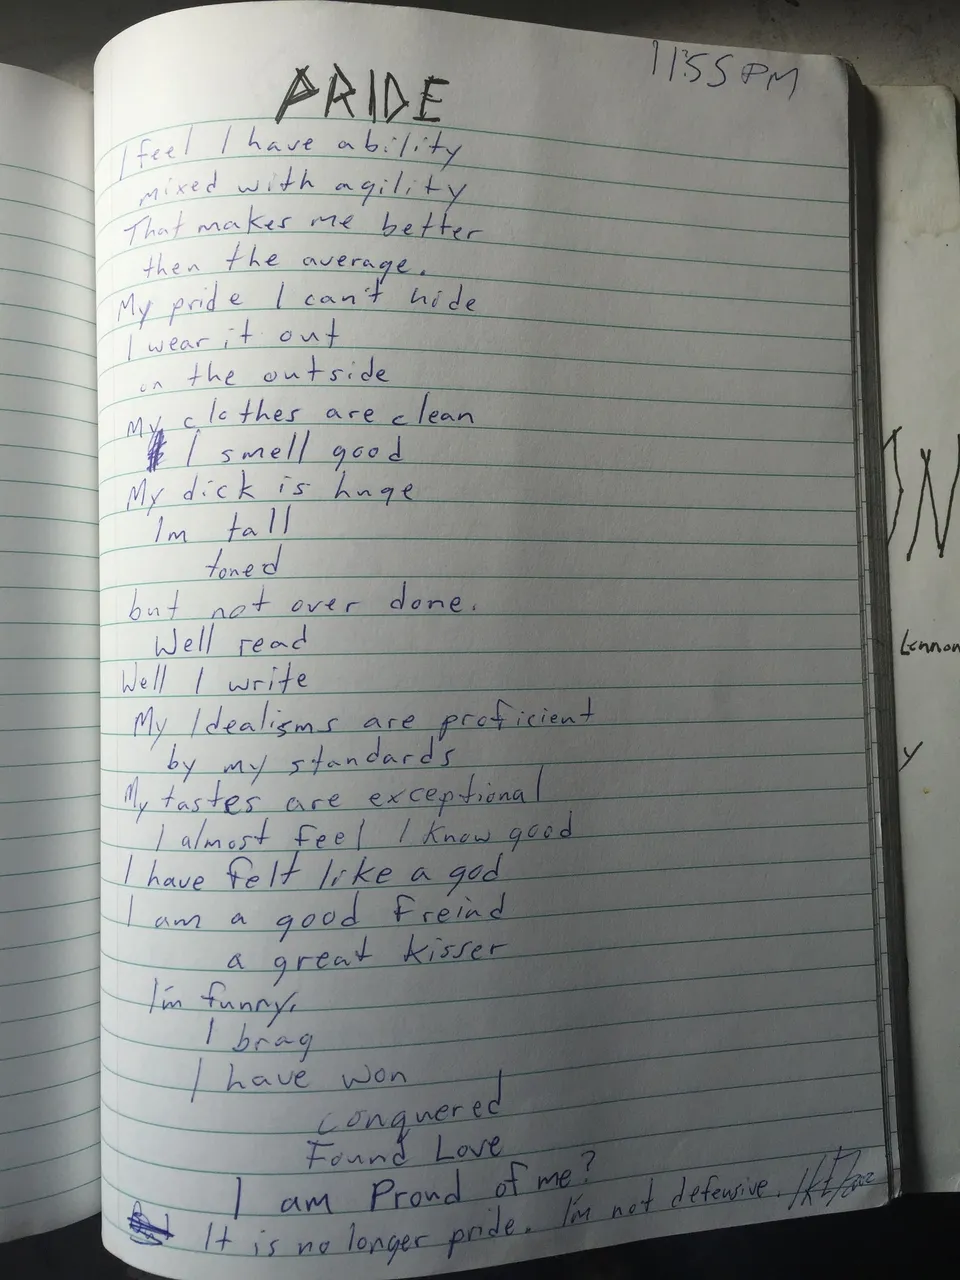 11:55 PM
PRIDE
I feel I have ability
mixed with agility
That makes me better
then the average.
My pride I can't hide
I wear it out
on the outside
My clothes are clean
I smell good
My dick is huge
Im tall
toned
but not over done.
Well read
Well I write
My Idealisms are proficient
by my standards
My tastes are exceptional
I almost feel I know good
I have felt like a god
I am a good freind
a great kisser
I'm funny.
I brag
I have won
conquered
Found Love
I am Proud of me?
It is no longer pride. I'm not defensive.
Lennon
y